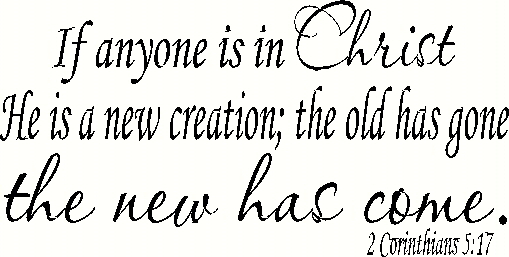 If anyone is in Christ
He is a new creation; the old has gone
the new has come.
2 Corinthians 5:17